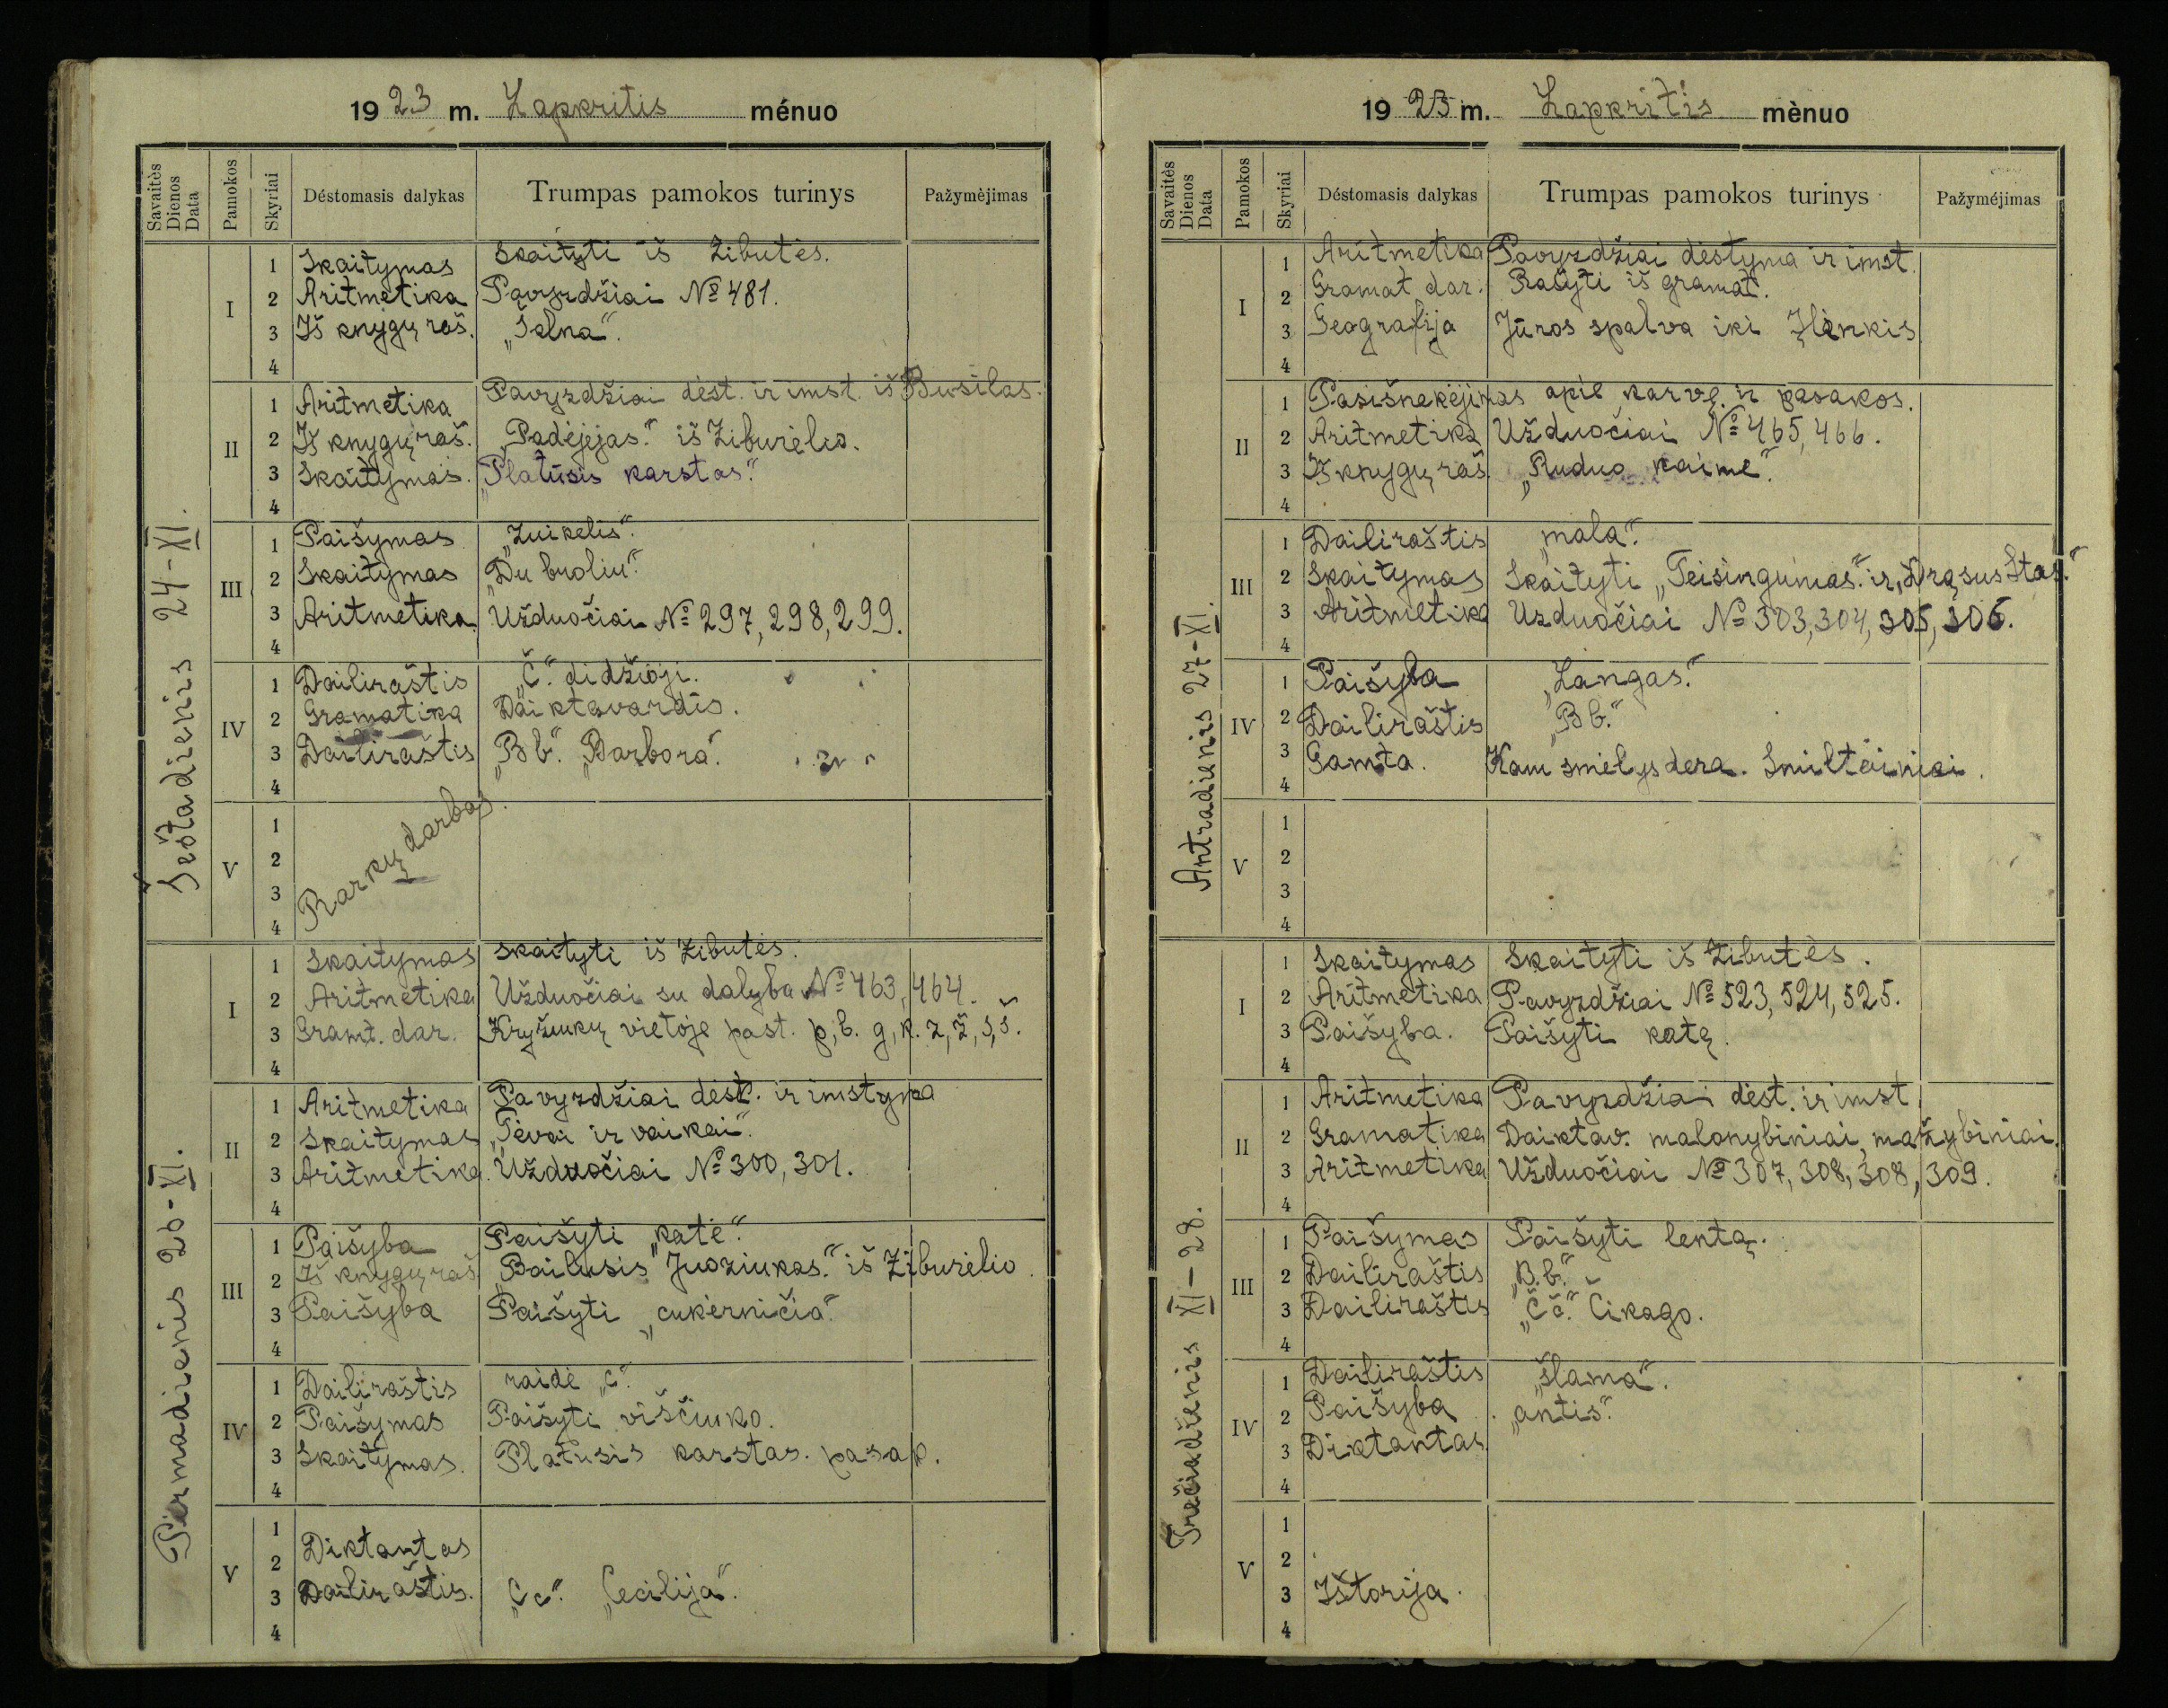 1923 m. Lapkritis ménuo
Savaitės Dienos Data
Pamokos
Skyriai
Déstomasis dalykas
Trumpas pamokos turinys
Pažymėjimas
Šeštadienis 24-XI.
I
1 Skaitymas skaityti iš Žibutės.
2 Aritmetika Pavyzdžiai № 481.
3 Iš knygų raš. „Šalna“.
4
II
1 Aritmetika Pavyzdžiai dėst. ir imst. iš Busilas.
2 Iš knygų raš. „Padėjėjas.“ iš Žiburėlio.
3 Skaitymas. „Platusis karstas.“
4
III
1 Paišymas „Zuikelis“.
2 Skaitymas „Du broliu“.
3 Aritmetika. Užduočiai № 297, 298, 299.
4
IV
1 Dailiraštis „Č“ didžioji.
2 Gramatika Daiktavardis.
3 Dailiraštis „Bb“. „Barbora“.
4
V
1
2 Rankų darbas.
3
4
Pirmadienis 26-XI.
I
1 Skaitymas skaityti iš Žibutės.
2 Aritmetika Užduočiai su dalyba № 463, 464.
3 Gramt. dar. Kryžiukų vietoje past. p, b. g, k. z, ž, s, š.
4
II
1 Aritmetika Pavyzdžiai dėst. ir imstyma
2 Skaitymas „Tėvai ir vaikai“.
3 Aritmetika. Užduočiai № 300, 301.
4
III
1 Paišyba Paišyti „katė“.
2 Iš knygų raš. „Bailusis Juoziukas.“ iš Žiburėlio.
3 Paišyba Paišyti „cukerničia“.
4
IV
1 Dailiraštis raidė „c“.
2 Paišymas Paišyti viščiuko.
3 Skaitymas. Platusis karstas. pasap.
4
V
1
2 Diktantas
3 Dailiraštis. „Cc“. „Cecilija“.
4
1923 m. Lapkritis mènuo
Savaitės Dienos Data
Pamokos
Skyriai
Déstomasis dalykas
Trumpas pamokos turinys
Pažyméjimas
Antradienis 27-XI.
I
1 Aritmetika Pavyzdžiai dėstyma ir imst.
2 Gramat dar. Rašyti iš gramat.
3 Geografija Jūros spalva iki Įlinkis
4
II
1 Pasišnekėjimas apie karvę ir pasakos.
2 Aritmetika Užduočiai № 465, 466.
3 Iš knygų raš. „Ruduo kaime“.
4
III
1 Dailiraštis „mala“.
2 Skaitymas Skaityti „Teisingumas“ ir „Drąsus Stas.“
3 Aritmetika Uzduočiai № 303, 304, 305, 306.
4
IV
1 Paišyba „Langas.“
2 Dailiraštis „Bb.“
3 Gamta. Kam smėlys dera. Smiltainiai.
4
V
1
2
3
4
Trečiadienis XI-28.
I
1 Skaitymas Skaityti iš Žibutės.
2 Aritmetika Pavyzdžiai № 523, 524, 525.
3 Paišyba. Paišyti katę.
4
II
1 Aritmetika Pavyzdžiai dėst. ir imst
2 Gramatika Daiktav. malonybiniai, mažybiniai.
3 Aritmetika Užduočiai № 307, 308, 308, 309.
4
III
1 Paišymas Paišyti lentą.
2 Dailiraštis „B.b.“
3 Dailiraštis „Čč.“ Čikago.
4
IV
1 Dailiraštis „šlama“.
2 Paišyba „antis“.
3 Diktantas
4
V
1
2
3 Ištorija.
4